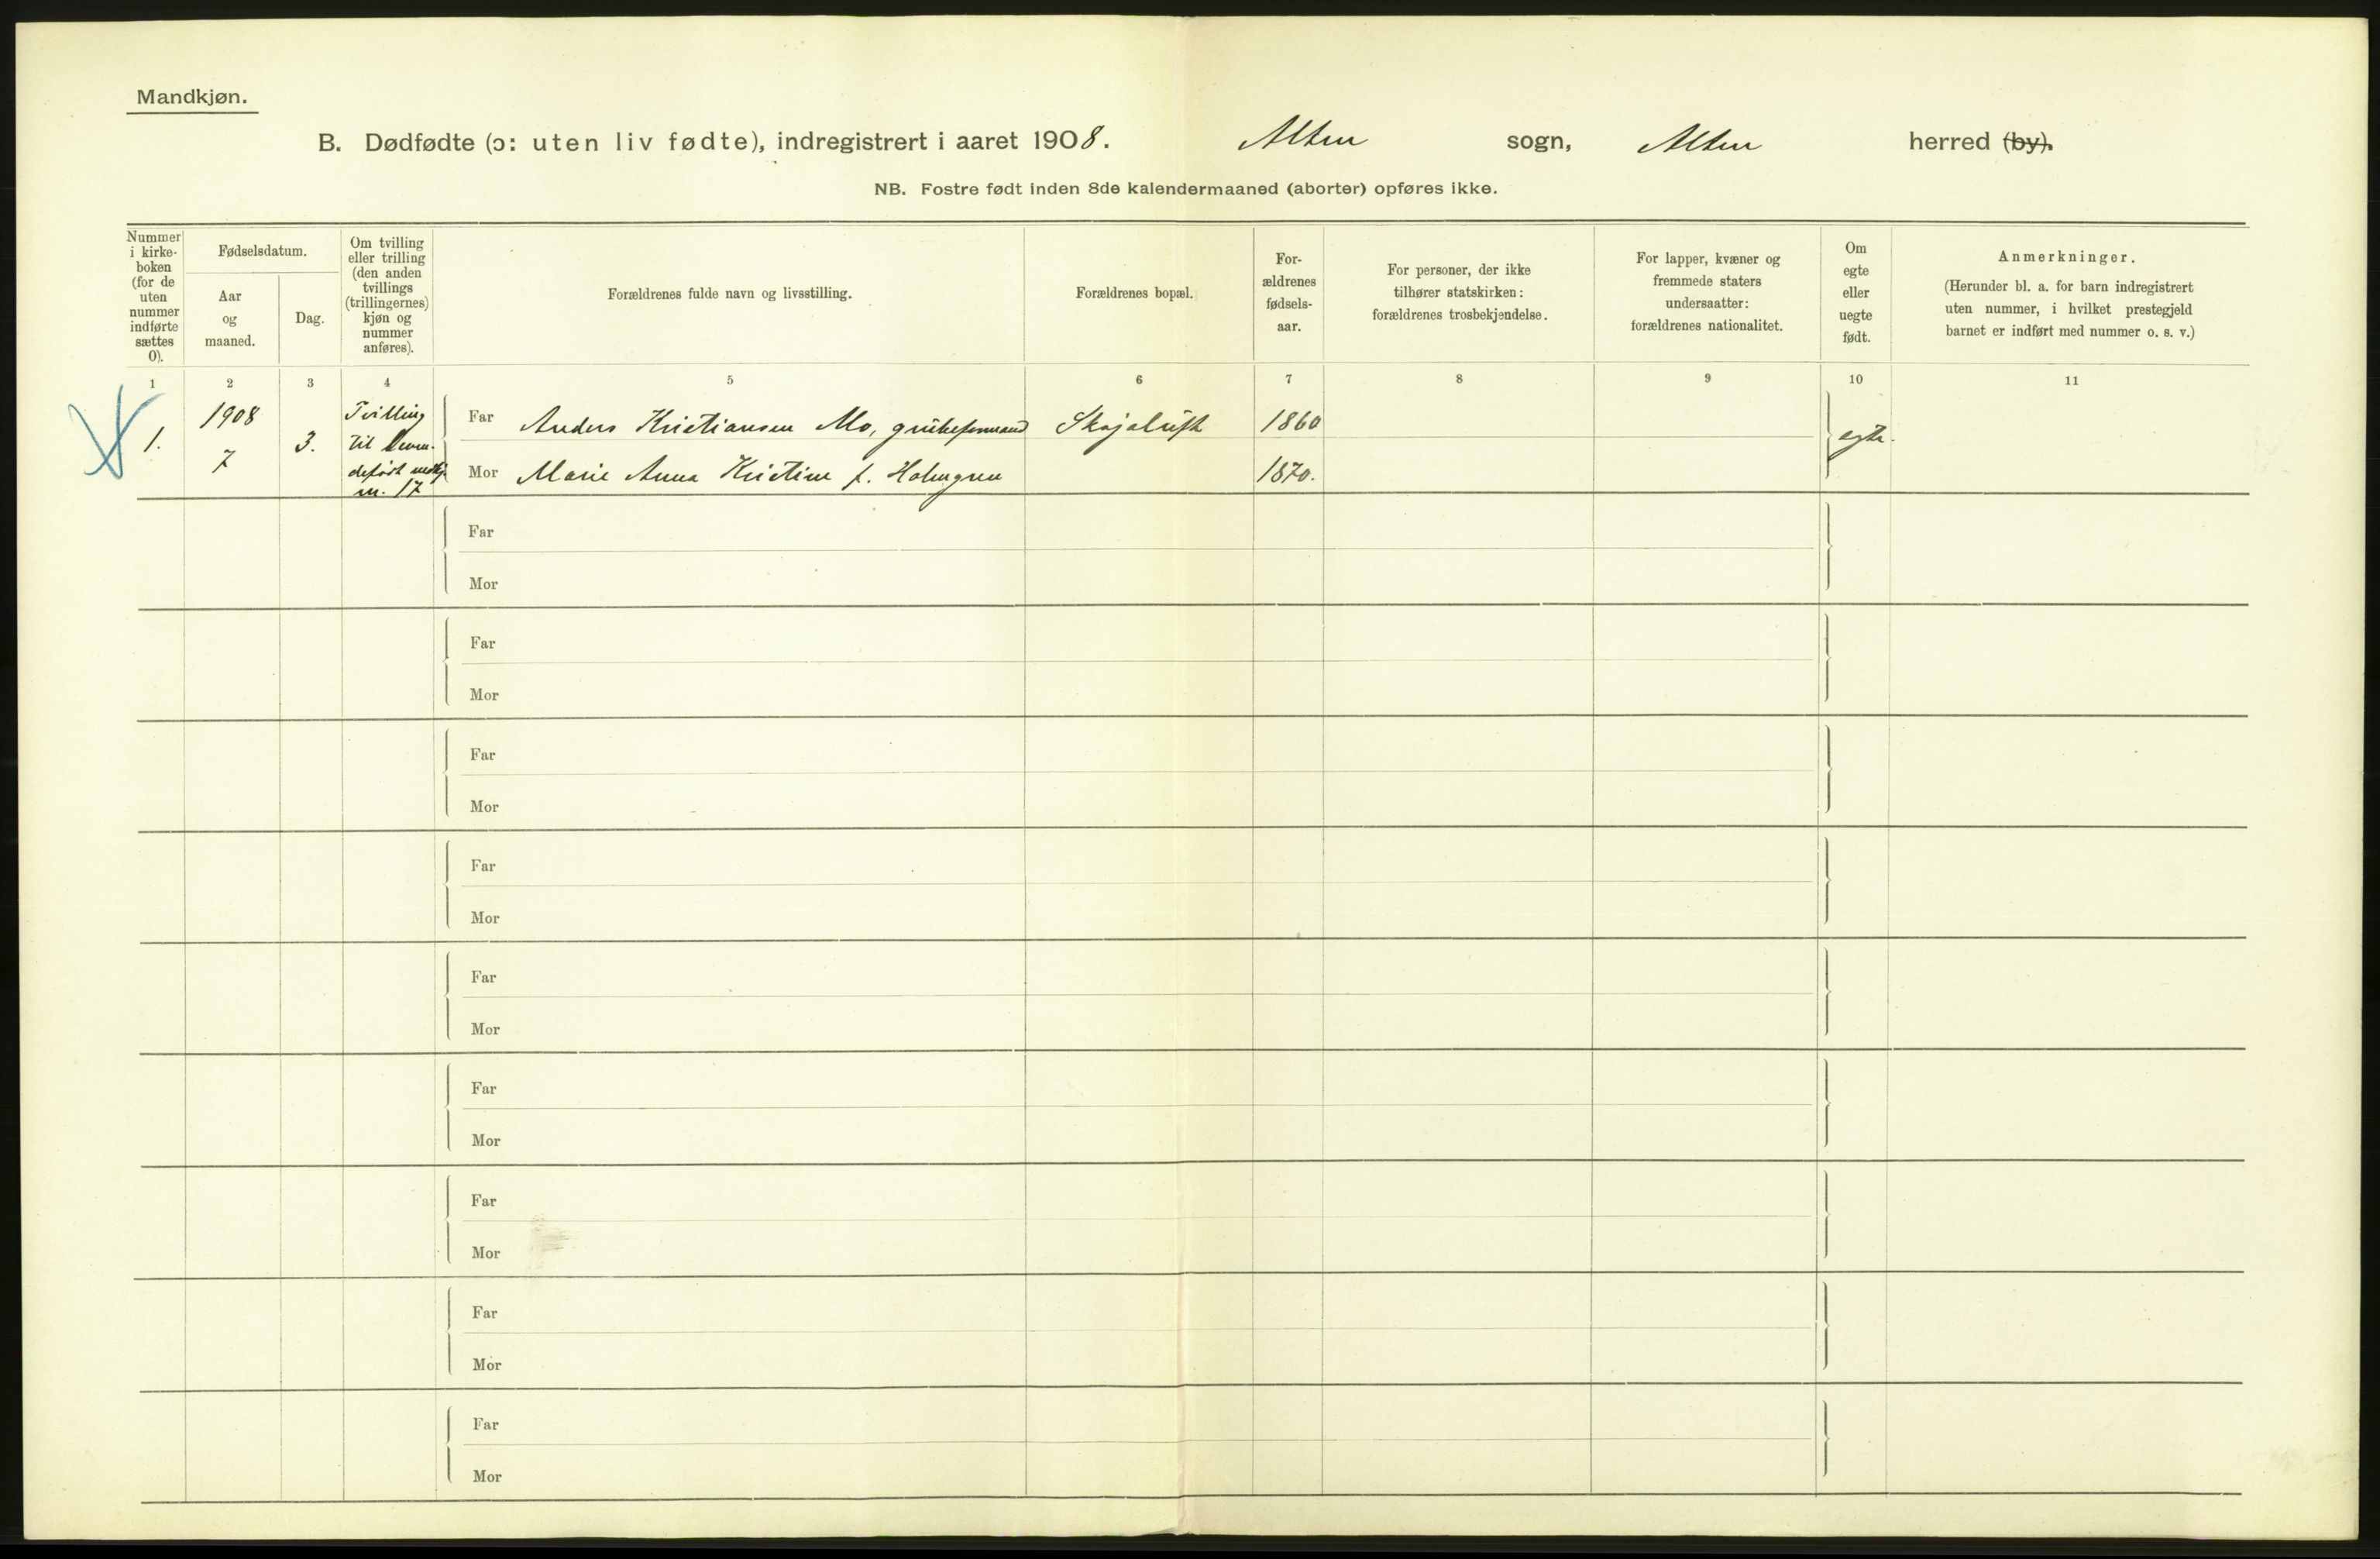 Mandkjøn.
B. Dødfødte (ɔ: uten liv fødte), indregistrert i aaret 1908. Alten sogn, Alten herred (by).
NB. Fostre født inden 8de kalendermaaned (aborter) opføres ikke.
Nummer
i kirke-
boken
(for de
uten
nummer
indførte
sættes
0).
Fødselsdatum.
Aar
og
maaned.
Dag.
Om tvilling
eller trilling
(den anden
tvillings
(trillingernes)
kjøn og
nummer
anføres).
Forældrenes fulde navn og livsstilling.
Forældrenes bopæl.
For-
ældrenes
fødsels-
aar.
For personer, der ikke
tilhører statskirken:
forældrenes trosbekjendelse.
For lapper, kvæner og
fremmede staters
undersaatter:
forældrenes nationalitet.
Om
egte
eller
uegte
født.
Anmerkninger.
(Herunder bl. a. for barn indregistrert
uten nummer, i hvilket prestegjeld
barnet er indført med nummer o. s. v.)
1 2 3 4 5 6 7 8 9 10 11
1.
1908
7
3.
Tvilling
til leven-
defödt
n. 17
Far Anders Kristiansen Mo, Skojaluft 1860
Mor Marie Anna Kristine f. Holmgren 1870.
egte.
Far
Mor
Far
Mor
Far
Mor
Far
Mor
Far
Mor
Far
Mor
Far
Mor
Far
Mor
Far
Mor